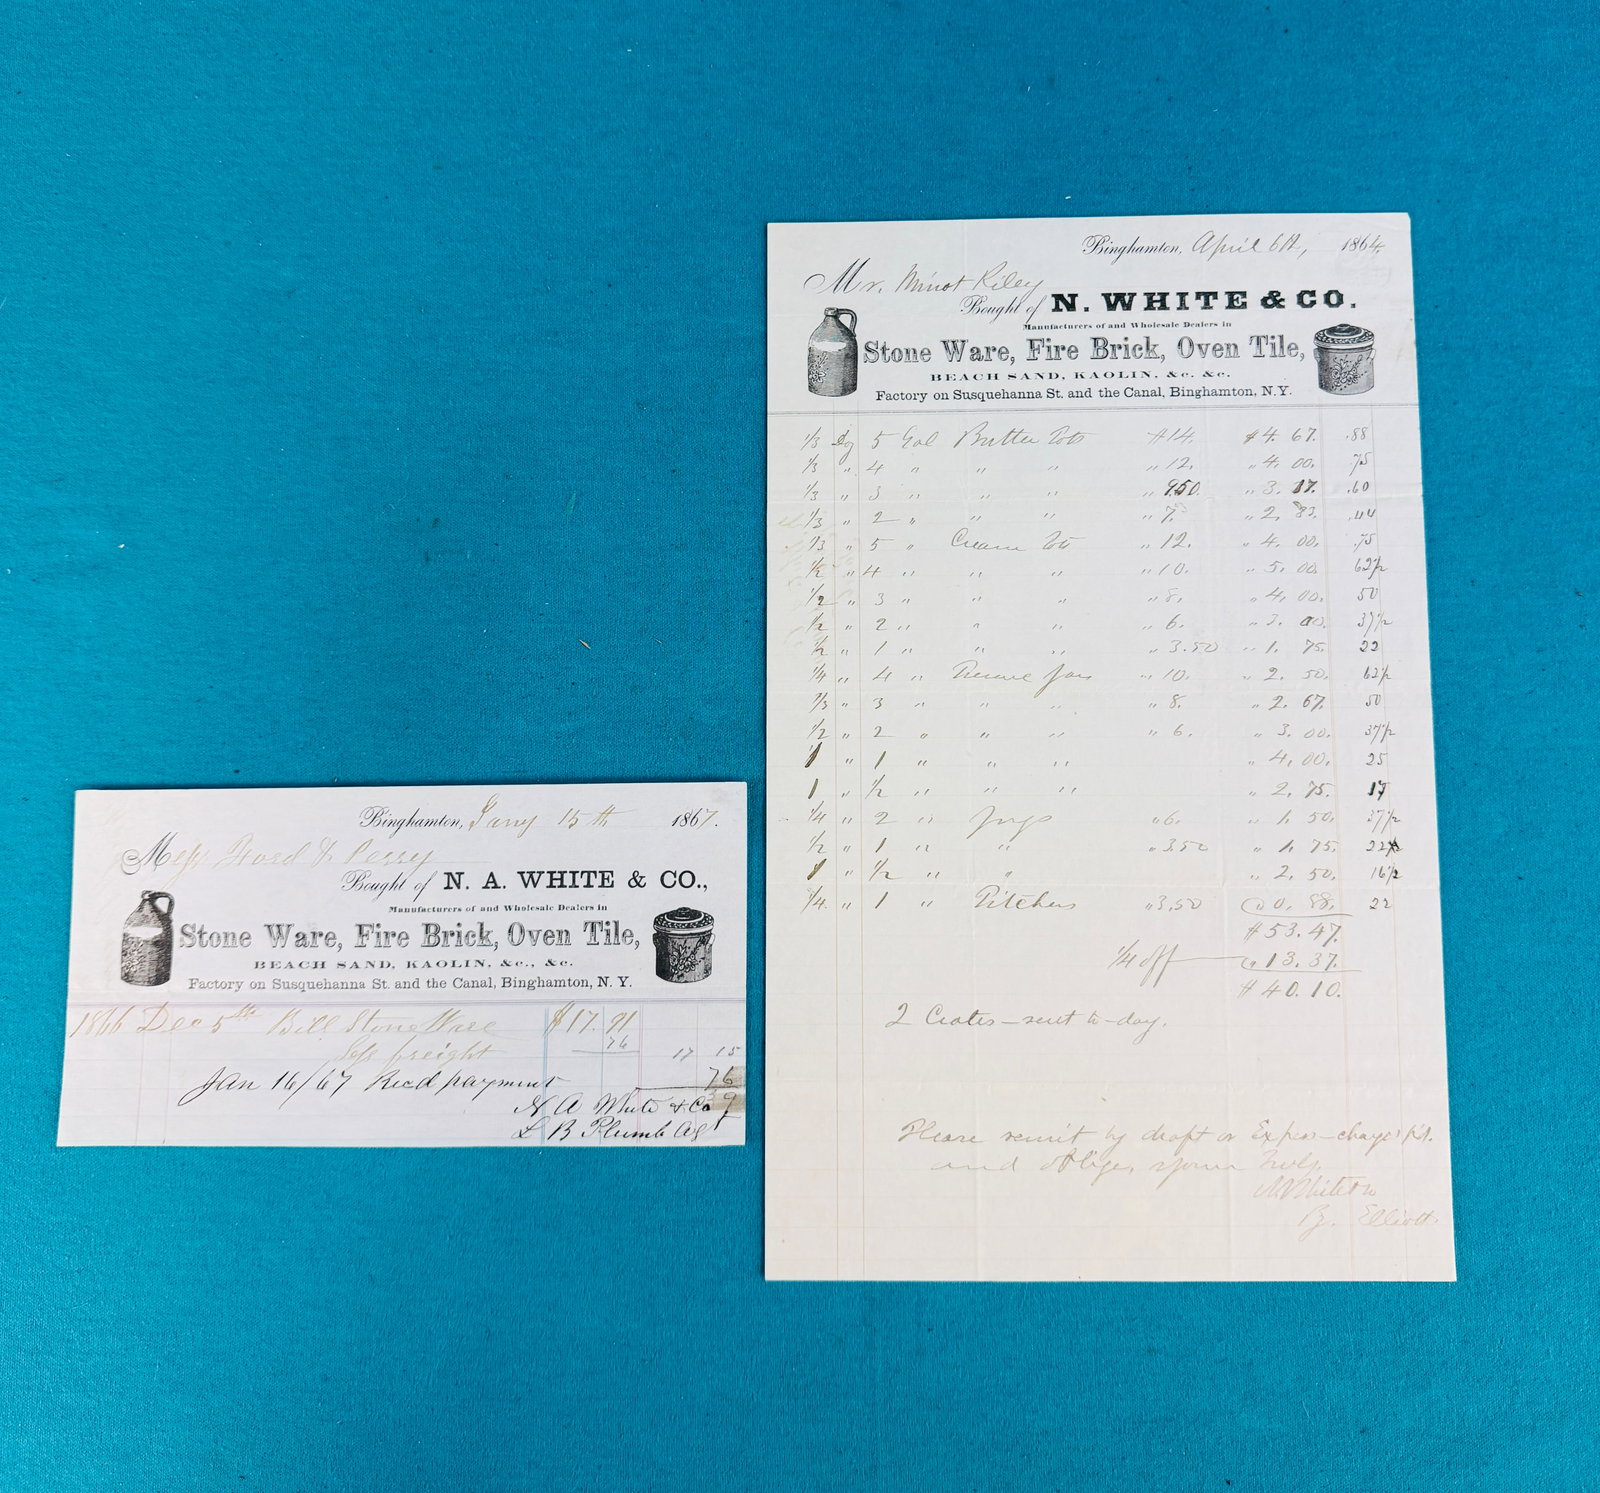 Binghamton, Jany 15th 1867.
Mess Ford & Perry
Bought of N. A. WHITE & CO.,
Manufacturers of and Wholesale Dealers in
Stone Ware, Fire Brick, Oven Tile,
BEACH SAND, KAOLIN, &c., &c.
Factory on Susquehanna St. and the Canal, Binghamton, N. Y.
1866 Dec 5th Bill Stone Ware $17. 91
less freight 76 17 15
Jan 16/67 Recd payment 76
N A White & Co 39
L B Plumb Agt
Binghamton, April 6th, 1864.
Mr. Minot Riley
Bought of N. WHITE & CO.
Manufacturers of and Wholesale Dealers in
Stone Ware, Fire Brick, Oven Tile,
BEACH SAND, KAOLIN, &c. &c.
Factory on Susquehanna St. and the Canal, Binghamton, N.Y.
1/3 Dz 5 Gal Butter Pots $14. $4. 67. .88
1/3 " 4 " " " " 12. " 4. 00. .75
1/3 " 3 " " " " 9.50. " 3. 17. .60
1/3 " 2 " " " " 7. " 2. 33. .44
1/3 " 5 " Cream Pots " 12. " 4. 00. .75
1/2 " 4 " " " " 10. " 5. 00. 62 1/2
1/2 " 3 " " " " 8. " 4. 00. 50
1/2 " 2 " " " " 6. " 3. 00. 37 1/2
1/2 " 1 " " " " 3.50 " 1. 75. 22
1/4 " 4 " Preserve Jars " 10. " 2. 50. 62 1/2
1/3 " 3 " " " " 8. " 2. 67. 50
1/2 " 2 " " " " 6. " 3. 00. 37 1/2
1 " 1 " " " " 4. 00. 25
1 " 1/2 " " " " 2. 75. 17
1/4 " 2 " Jugs " 6. " 1. 50. 37 1/2
1/2 " 1 " " " 3.50 " 1. 75. 22
1 " 1/2 " " " 2. 50. 16 1/2
1/4. " 1 " Pitchers " 3.50 " 0. 88. 22
$53.47.
1/4 off " 13.37.
$40.10.
2 Crates – sent to-day.
Please remit by draft or Express – charges p'd.
and oblige, yours Truly,
N White & Co
By. Elliott